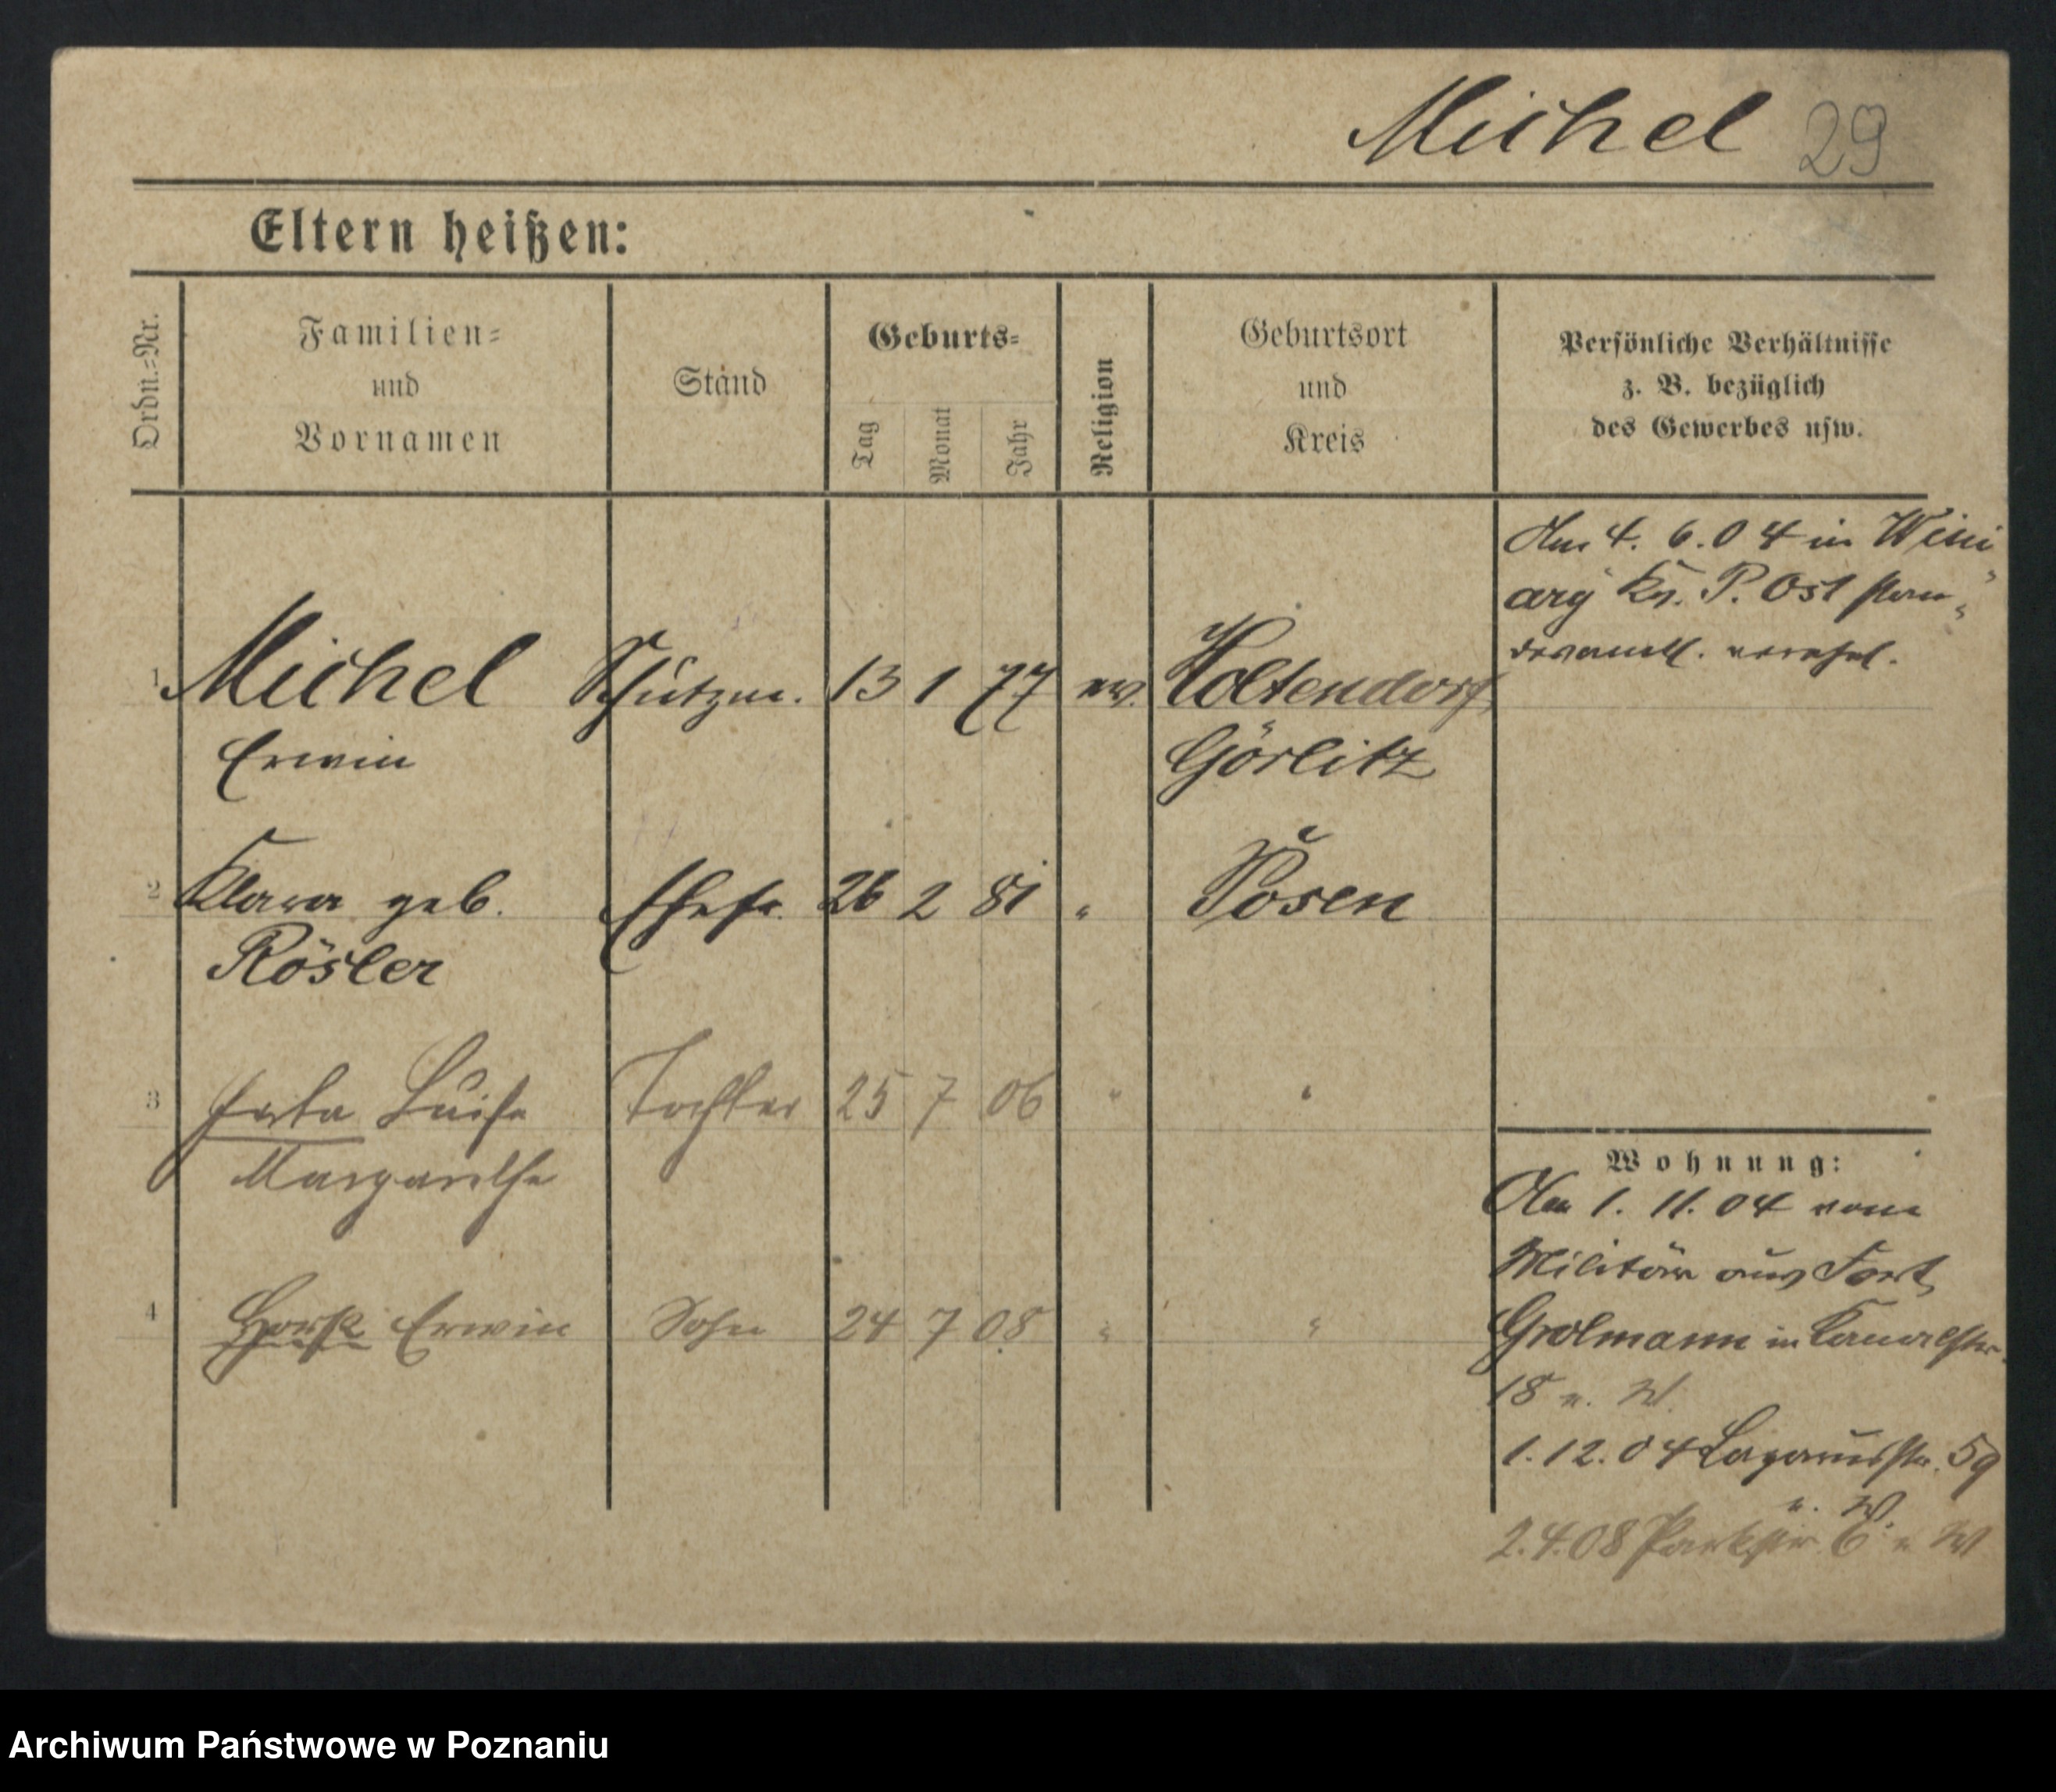 Michel 29
Eltern heißen:
Ordn.-Nr.
Familien-
und
Vornamen
Stand
Geburts-
Tag
Monat
Jahr
Religion
Geburtsort
und
Kreis
Persönliche Verhältnisse
z. B. bezüglich
des Gewerbes usw.
Am 4. 6. 04 in Wini
ary Kr. P. Ost stan-
desamtl. verehel.
1 Michel Schutzm. 13 1 77 ev. Holtendorf
Erwin Görlitz
2 Klara geb. Ehefr. 26 2 81 " Posen
Rösler
3 Luise Tochter 25 7 06 " "
Margarethe
4 Horst Erwin Sohn 24 7 08 " "
Wohnung:
Am 1. 11. 04 vom
Militär aus Fort
Grolmann in Kanalstr.
18 n. W.
1. 12. 04 Lazarusstr. 59
n. W.
2. 4. 08 Parkstr. 6 n W
Archiwum Państwowe w Poznaniu